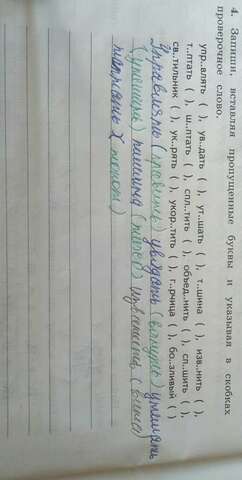 4. Запиши, вставляя пропущенные буквы и указывая в скобках
проверочное слово.
упр..влять ( ), ув..дать ( ), ут..шать ( ), т..шина ( ), изв..нить ( ),
т..птать ( ), ш..птать ( ), спл..тить ( ), объед..нить ( ), сп..шить ( ),
св..тильник ( ), ук..рять ( ), укор..тить ( ), г..рчица ( ), бо..зливый ( )
Управлять (правит) увядать (вянут) утешать
(утешит) тишина (тихо)
топтать (топот)